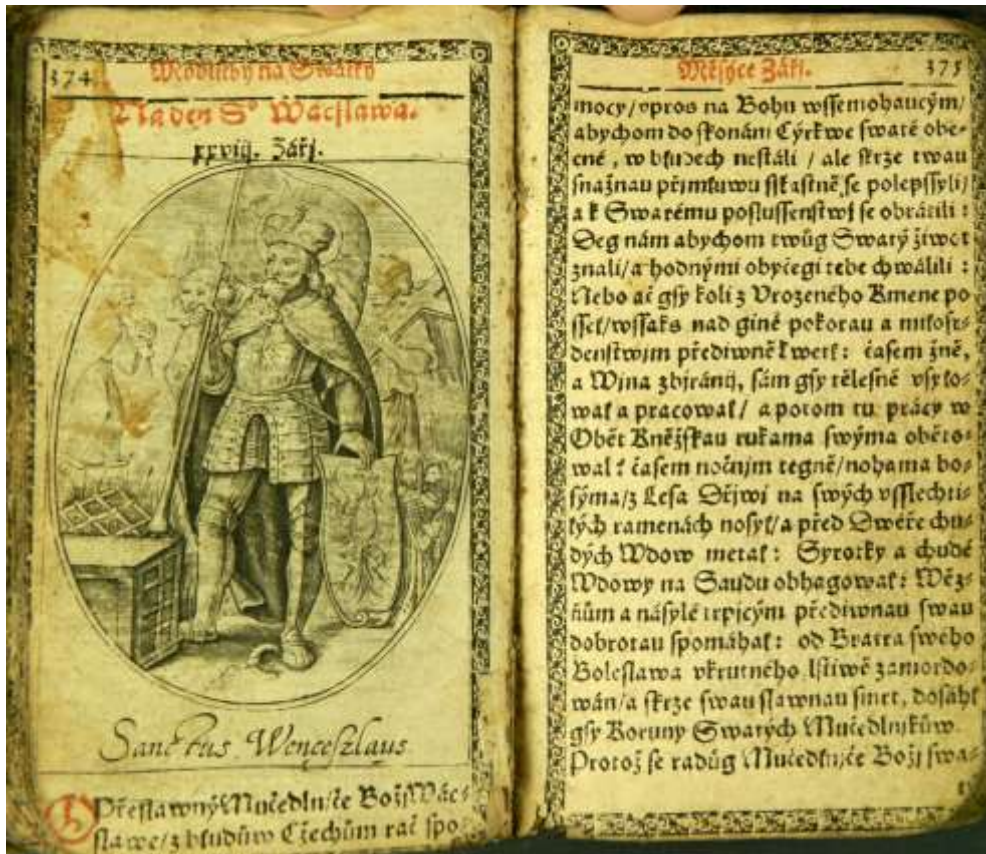 374 Modlitby na Swátky
Na den S° Wácslawa.
xxviij. Zářj.
Sanctus Wenceszlaus
Přeslawný Mučedlnjče Božj Wác-
slawe/z bludůw Cžechům rač spo-
Měsýce Zářj. 375
mocy/vpros na Bohu wssemohaucým/
abychom do skonánj Cýrkwe swaté obe-
cné, w bludech nestáli / ale skrze twau
snažnau přimluwu sstastně se polepssyli/
a k Swatému poslussenstwj se obrátili:
Deg nám abychom twůg Swatý žiwot
znali/a hodnými obyčegi tebe chwálili:
Nebo ač gsy koli z Vrozeného Kmene po
ssel/wssaks nad giné pokorau a milosr-
denstwjm přediwně kwetl: časem žně,
a Wjna zbjránj, sám gsy tělesně vsylo-
wal a pracowal/ a potom tu prácy w
Obět Kněžskau rukama swýma oběto-
wal: časem nočnjm tegně/nohama bo-
sýma/z Lesa Dřjwj na swých vsslechti-
lých ramenách nosyl/a před Dweře chu-
dých Wdow metal: Syrotky a chudé
Wdowy na Saudu obhagowal: Wěz-
ňům a násylé trpjcým předjwnau swau
dobrotau spomáhal: od Bratra swého
Boleslawa vkrutného lstiwě zamordo-
wán/a skrze swau slawnau smrt, dosáhl
gsy Koruny Swatých Mučedlnjkůw.
Protož se radůg Mučedlnjče Božj swa-